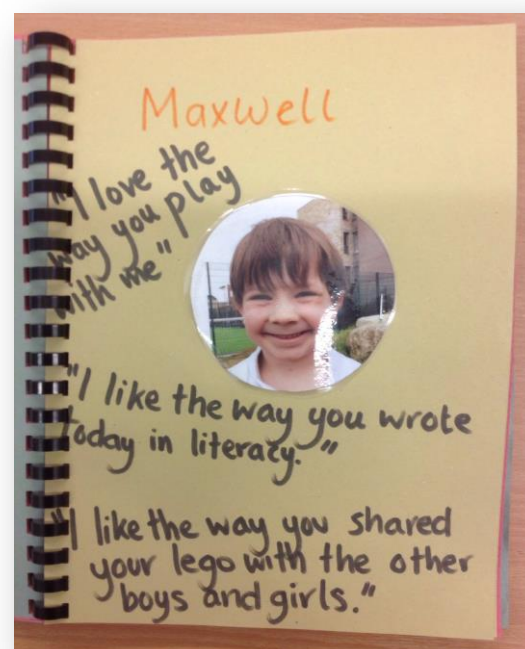 Maxwell
"I love the
way you play
with me"
"I like the way you wrote
today in literacy."
"I like the way you shared
your lego with the other
boys and girls."